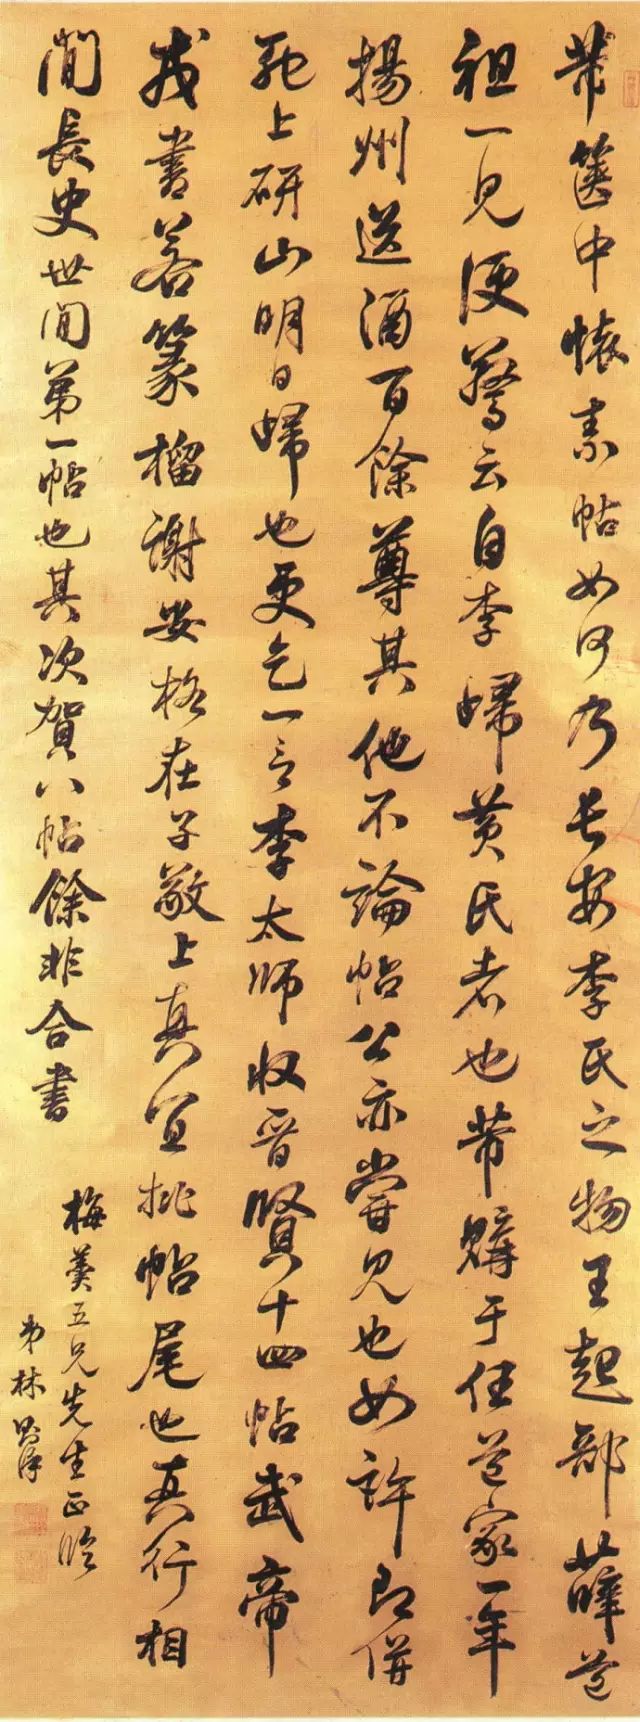 芾篋中懷素帖如何乃長安李氏之物王起部薛道
祖一見便驚云自李歸黃氏者也芾購于任道家一年
揚州送酒百餘尊其他不論帖公亦嘗見也如許即併
馳上研山明日歸也更乞一言李太師收晉賢十四帖武帝
戎書若篆榴謝安格在子敬上真宜批帖尾也真行相
間長史世間第一帖也其次賀八帖餘非合書
梅羹五兄先生正臨
弟林則徐